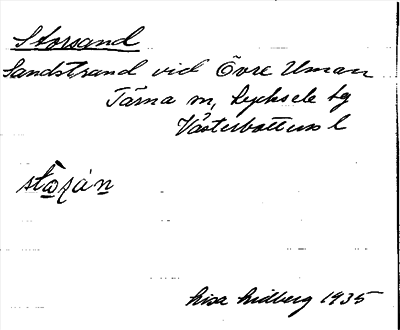 Storsand
Sandstrand vid Övre Uman
Tärna sn, Lycksele lg
Västerbottens l
Lisa Lidberg 1935